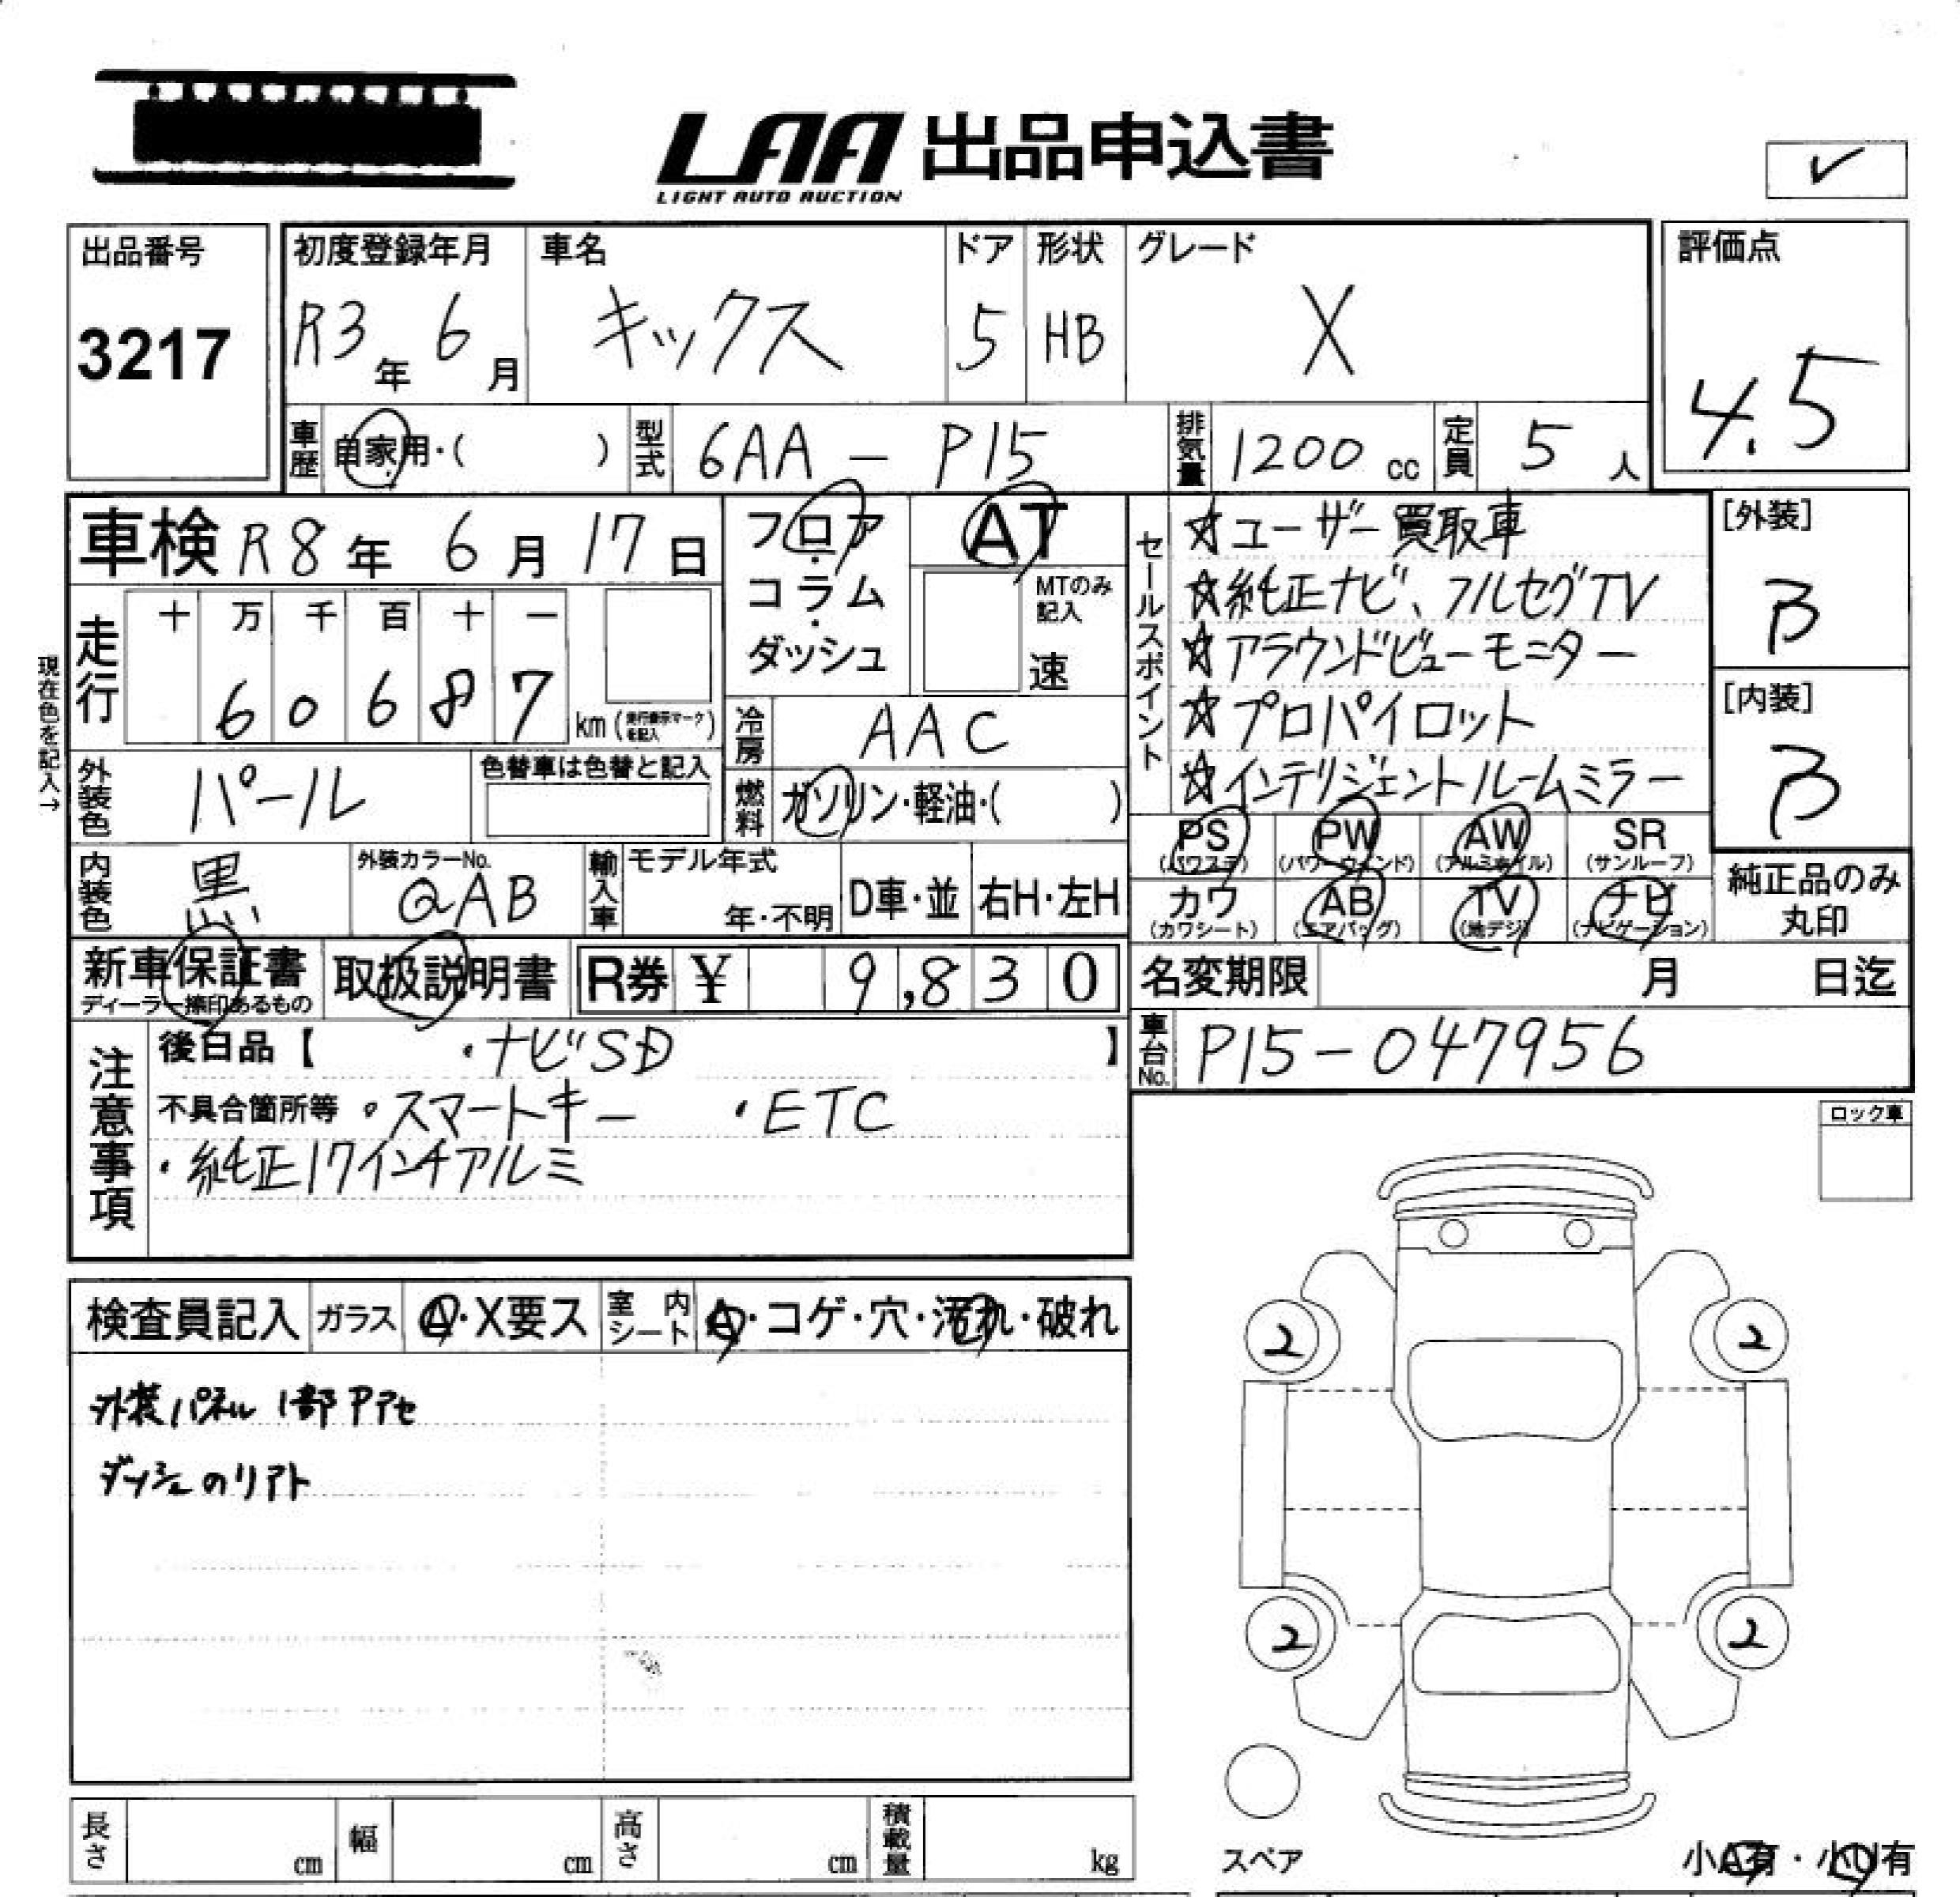 LAA 出品申込書
LIGHT AUTO AUCTION
✓
出品番号
3217
初度登録年月
R3年 6月
車名
キックス
ドア
5
形状
HB
グレード
X
評価点
4.5
車歴 自家用・( )
型式 6AA - P15
排気量 1200 cc
定員 5 人
車検 R8年 6月 17日
フロア・コラム・ダッシュ
AT
MTのみ記入
速
セールスポイント
☆ユーザー買取車
☆純正ナビ、フルセグTV
☆アラウンドビューモニター
☆プロパイロット
☆インテリジェントルームミラー
[外装]
B
[内装]
B
現在色を記入→
走行
十 万 千 百 十 一
6 0 6 8 7 km (走行表示マークを記入)
冷房 AAC
外装色 パール
色替車は色替と記入
燃料 ガソリン・軽油・( )
PS (パワステ)
PW (パワーウィンド)
AW (アルミホイル)
SR (サンルーフ)
カワ (カワシート)
AB (エアバッグ)
TV (地デジ)
ナビ (ナビゲーション)
純正品のみ丸印
内装色 黒
外装カラーNo.
QAB
輸入車
モデル年式
年・不明
D車・並
右H・左H
新車保証書
ディーラー捺印あるもの
取扱説明書
R券 ¥ 9,830
名変期限 月 日迄
注意事項
後日品【 ・ナビSD 】
車台No. P15-047956
不具合箇所等 ・スマートキー ・ETC
・純正17インチアルミ
ロック車
検査員記入
ガラス A・X要ス
室内シート A・コゲ・穴・汚れ・破れ
外装パネル 1部Pアセ
ダッシュのリアト
2 2
2 2
スペア
小A有・小U有
長さ cm
幅 cm
高さ cm
積載量 kg